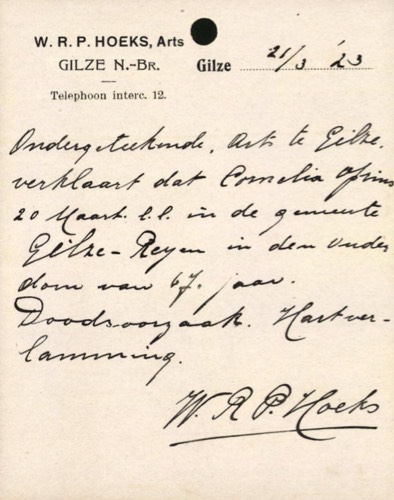 W. R. P. HOEKS, Arts
GILZE N.-BR.
Telephoon interc. 12.
Gilze 21/3 '23
Ondergeteekende, Arts te Gilze,
verklaart dat Cornelia
20 Maart l.l. in de gemeente
Gilze-Reyen in den ouder
dom van 67. jaar.
Doodsoorzaak. Hartver-
lamming.
W. R. P. Hoeks